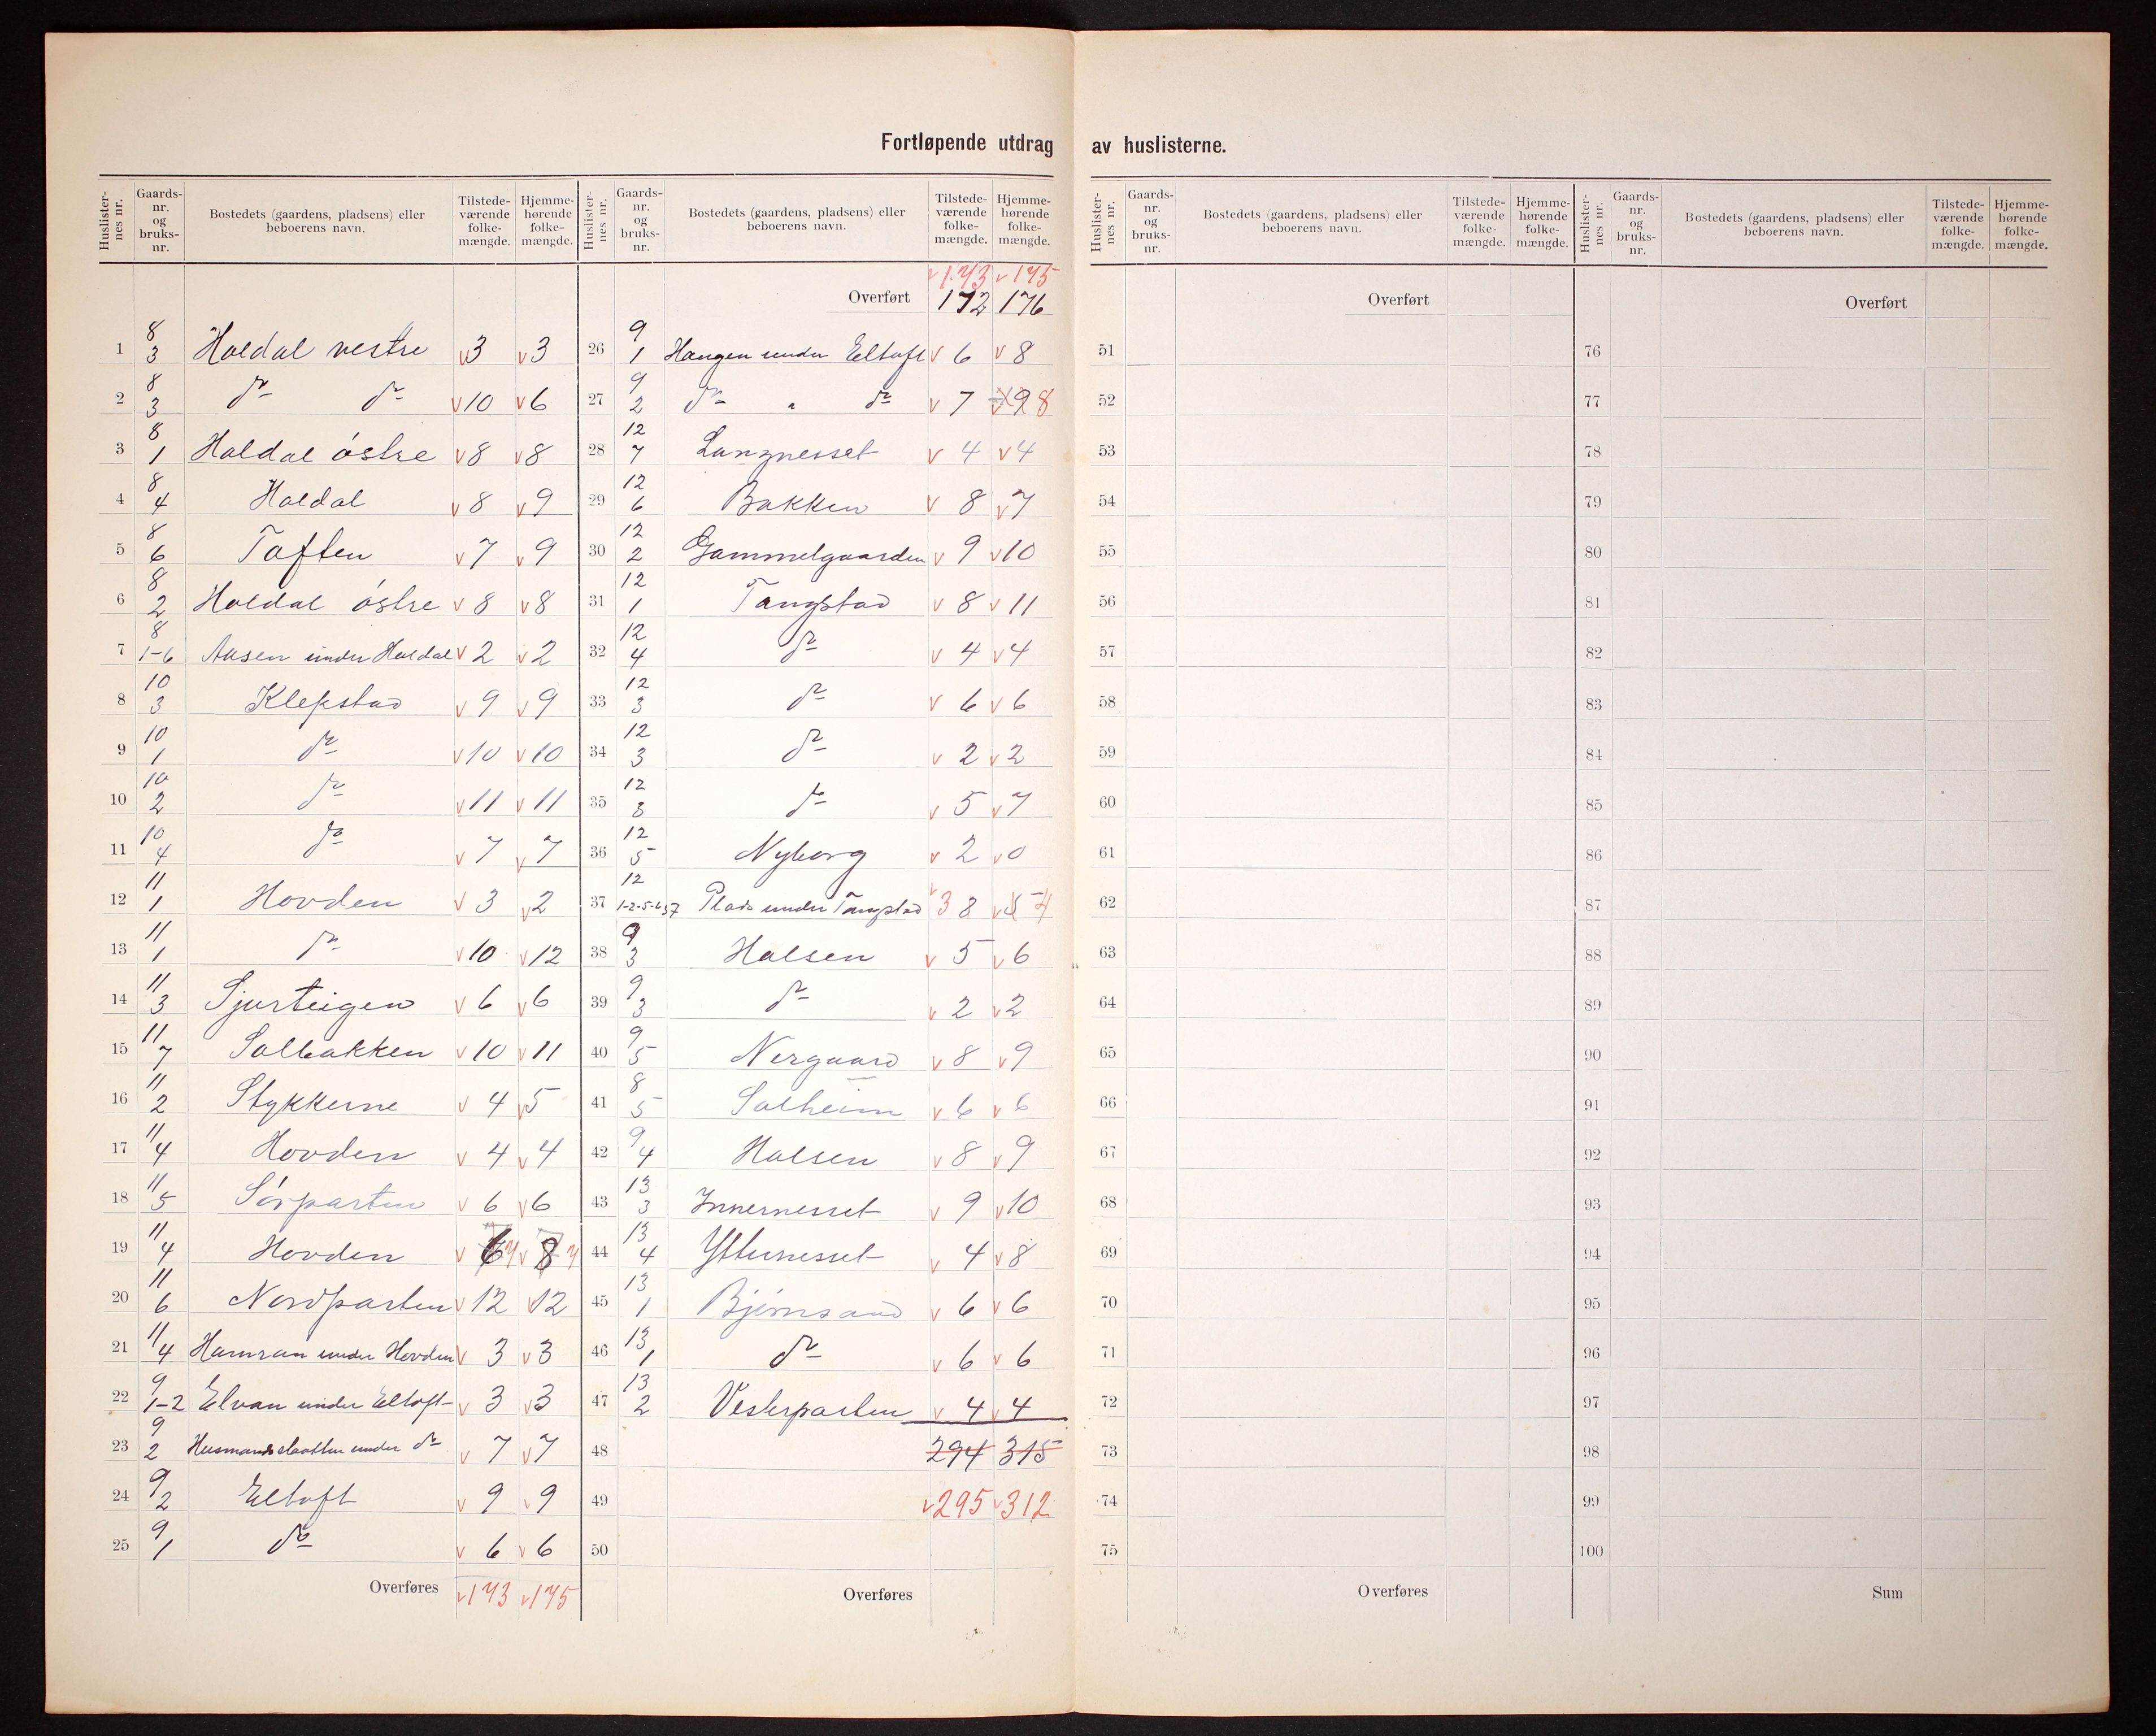 Fortløpende utdrag av huslisterne.
Huslister-nes nr. Gaards-nr. og bruks-nr. Bostedets (gaardens, pladsens) eller beboerens navn. Tilstede-værende folke-mængde. Hjemme-hørende folke-mængde.
1 8 3 Haldal vestre v3 v3
2 8 3 do do v10 v6
3 8 1 Haldal østre v8 v8
4 8 4 Haldal v8 v9
5 8 6 Toften v7 v9
6 8 2 Haldal østre v8 v8
7 8 1-6 Aasen under Haldal v2 v2
8 10 3 Klepstad v9 v9
9 10 1 do v10 v10
10 10 2 do v11 v11
11 10 4 do v7 v7
12 11 1 Hovden v3 v2
13 11 1 do v10 v12
14 11 3 Sjurteigen v6 v6
15 11 7 Solbakken v10 v11
16 11 2 Stykkerne v4 v5
17 11 4 Hovden v4 v4
18 11 5 Sørparten v6 v6
19 11 4 Hovden v 6 7 v 8 7
20 11 6 Nordparten v12 v12
21 11 4 Hamran under Hovden v3 v3
22 9 1-2 Elvan under Eltoft v3 v3
23 9 2 Husmandslaatten under do v7 v7
24 9 2 Eltoft v9 v9
25 9 1 do v6 v6
Overføres v173 v175
Huslister-nes nr. Gaards-nr. og bruks-nr. Bostedets (gaardens, pladsens) eller beboerens navn. Tilstede-værende folke-mængde. Hjemme-hørende folke-mængde.
v173 v175
Overført 172 176
26 9 1 Haugen under Eltoft v6 v8
27 9 2 do " do v7 v9 8
28 12 7 Langnesset v4 v4
29 12 6 Bakken v8 v7
30 12 2 Gammelgaarden v9 v10
31 12 1 Tangstad v8 v11
32 12 4 do v4 v4
33 12 3 do v6 v6
34 12 3 do v2 v2
35 12 8 do v5 v7
36 12 5 Nyborg v2 v0
37 12 1-2-5-6 37 Plads under Tangstad v3 8 v5 4
38 9 3 Halsen v5 v6
39 9 3 do v2 v2
40 9 5 Nergaard v8 v9
41 8 5 Solheim v6 v6
42 9 4 Halsen v8 v9
43 13 3 Innernesset v9 v10
44 13 4 Ytternesset v4 v8
45 13 1 Bjørnsand v6 v6
46 13 1 do v6 v6
47 13 2 Vesterparten v4 v4
48 294 315
49 v295 v312
50
Overføres
Huslister-nes nr. Gaards-nr. og bruks-nr. Bostedets (gaardens, pladsens) eller beboerens navn. Tilstede-værende folke-mængde. Hjemme-hørende folke-mængde.
Overført
51
52
53
54
55
56
57
58
59
60
61
62
63
64
65
66
67
68
69
70
71
72
73
74
75
Overføres
Huslister-nes nr. Gaards-nr. og bruks-nr. Bostedets (gaardens, pladsens) eller beboerens navn. Tilstede-værende folke-mængde. Hjemme-hørende folke-mængde.
Overført
76
77
78
79
80
81
82
83
84
85
86
87
88
89
90
91
92
93
94
95
96
97
98
99
100
Sum